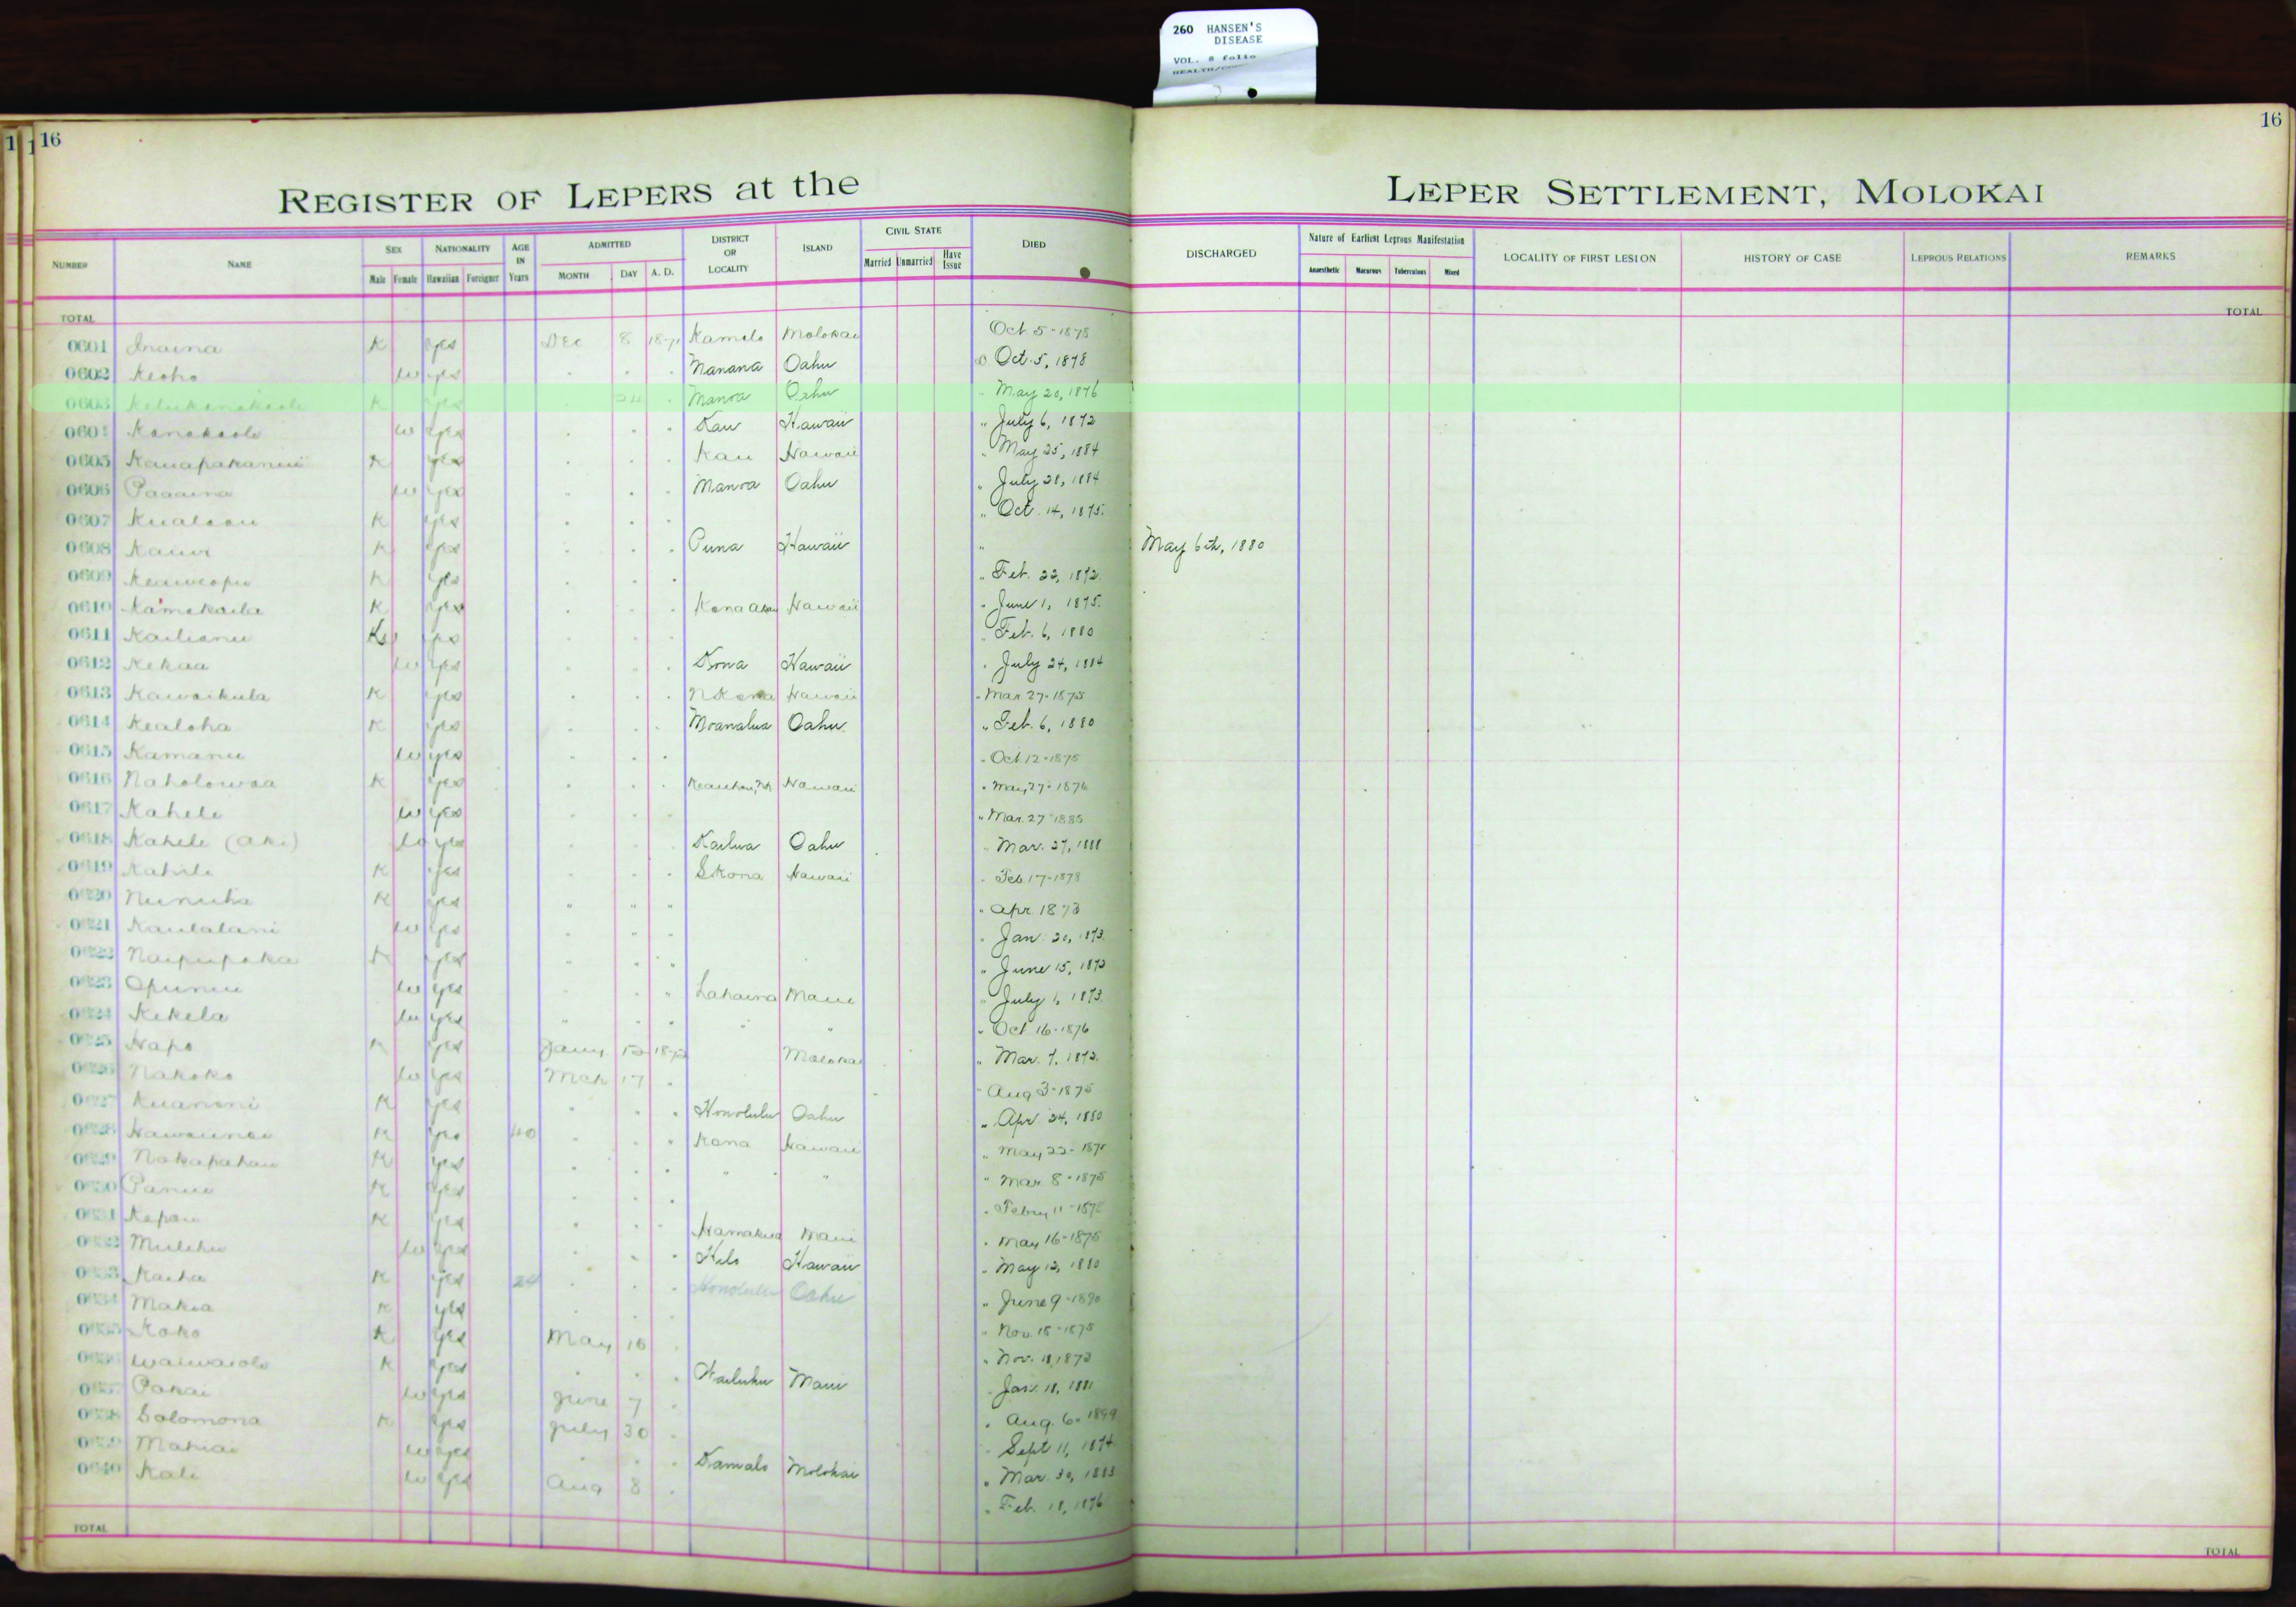 260 HANSEN'S
DISEASE
VOL. 8 folio
16
16
REGISTER OF LEPERS at the LEPER SETTLEMENT, MOLOKAI
NUMBER NAME SEX Male Female NATIONALITY Hawaiian Foreigner AGE IN Years ADMITTED MONTH DAY A. D. DISTRICT OR LOCALITY ISLAND CIVIL STATE Married Unmarried Have Issue DIED DISCHARGED Nature of Earliest Leprous Manifestation Anaesthetic Macurous Tuberculous Mixed LOCALITY OF FIRST LESION HISTORY OF CASE LEPROUS RELATIONS REMARKS
TOTAL TOTAL
0601 Inaina K yes Dec 8 Kamalo Molokai Oct 5-1878
0602 Keoho W yes Manana Oahu Oct. 5, 1878
0603 K yes Manoa Oahu May 20, 1876
0604 Kanakaole W yes Kau Hawaii July 6, 1872
0605 K yes Kau Hawaii May 25, 1884
0606 Paaaina W yes Manoa Oahu July 28, 1884
0607 K yes Oct. 14, 1875
0608 Kauwi K yes Puna Hawaii May 6th, 1880
0609 K yes Feb. 22, 1872
0610 K yes Kona Akau Hawaii June 1, 1875
0611 Kailianu yes Feb. 6, 1880
0612 Kekaa W yes Kona Hawaii July 24, 1884
0613 Kawaikula K yes N Kona Hawaii Mar 27-1875
0614 Kealoha K yes Moanalua Oahu Feb. 6, 1880
0615 Kamanu W yes Oct 12-1875
0616 Naholowaa K yes Hawaii May 27-1876
0617 Kahele W yes Mar. 27-1885
0618 Kahele (Aki) W yes Kailua Oahu Mar. 27, 1888
0619 K yes S Kona Hawaii Feb. 17-1878
0620 K yes Apr 1873
0621 Kaulalani W yes Jan. 20, 1873
0622 Naipupaka K yes June 15, 1873
0623 Opunui W yes Lahaina Maui July 1, 1873
0624 Kekela W yes " " Oct 16-1876
0625 Napo K yes Jany Molokai Mar. 7, 1872
0626 Nakoko W yes Mch 17 Aug 3-1875
0627 K yes Honolulu Oahu Apr. 24, 1880
0628 K yes 40 Kona Hawaii May 22-1875
0629 Nakapahau K yes " " Mar 8-1875
0630 Panui K yes Febry 11-1878
0631 Kepau K yes Hamakua Maui May 16-1875
0632 Mulehu W yes Hilo Hawaii May 12, 1880
0633 Kaiha K yes 24 Honolulu Oahu June 9-1890
0634 Makia K yes Nov. 15-1875
0635 Koko K yes May 18 Nov. 11, 1873
0636 Waiwaiole K yes Wailuku Maui Jan. 18, 1881
0637 Pakai W yes June 7 Aug. 6- 1899
0638 Solomona K yes July 30 Sept 11, 1874
0639 Mahiai W yes Kamalo Molokai Mar. 30, 1883
0640 Kali W yes Aug 8 Feb. 18, 1876
TOTAL TOTAL